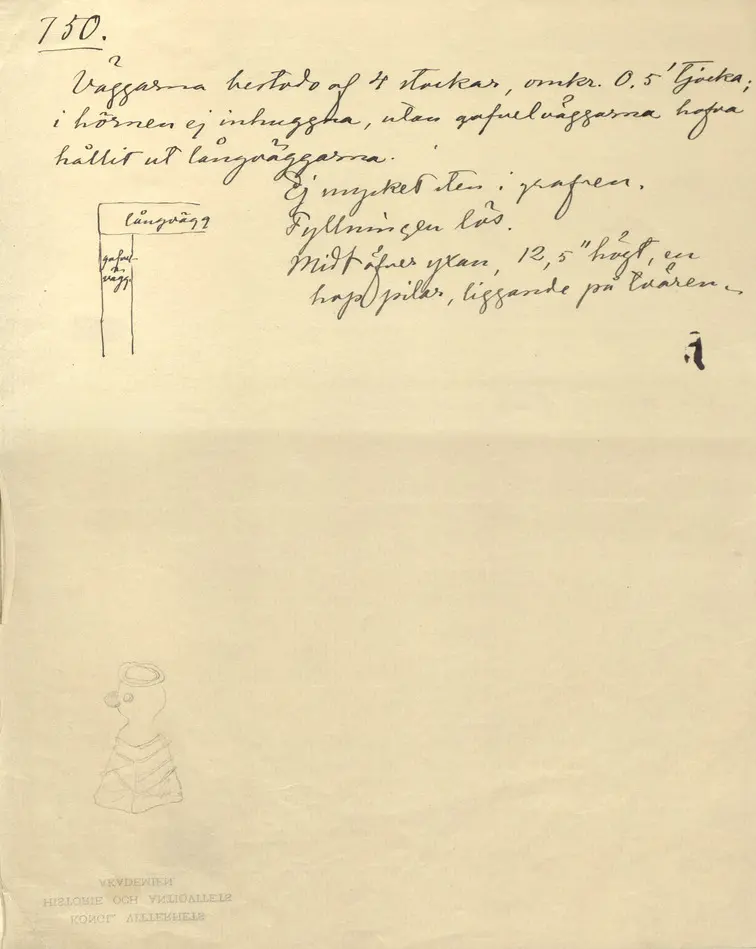 750.
Väggarna bestodo af 4 stockar, omkr. 0.5' tjocka;
i hörnen ej inhuggna, utan gafvelväggarna hafva
hållit ut långväggarna.
Ej mycket sten i grafven.
långvägg
Fyllningen lös.
gafvel-
vägg.
Midt öfver yxan, 12,5" högt, en
hop pilar, liggande på tvären.
AKADEMIEN
HISTORIE OCH ANTIQVITETS
KONGL. VITTERHETS